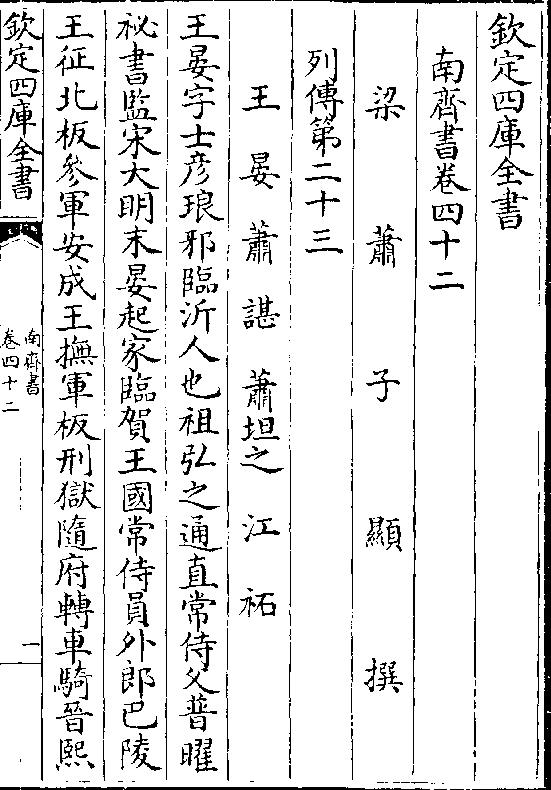 欽定四庫全書
南齊書卷四十二
梁 蕭 子 顯 撰
列傳第二十三
王晏 蕭諶 蕭坦之 江祏
王晏字士彦琅邪臨沂人也祖弘之通直常侍父普曜
祕書監宋大明末晏起家臨賀王國常侍員外郎巴陵
王征北板參軍安成王撫軍板刑獄隨府轉車騎晉熙
欽定四庫全書
南齊書
卷四十二
一